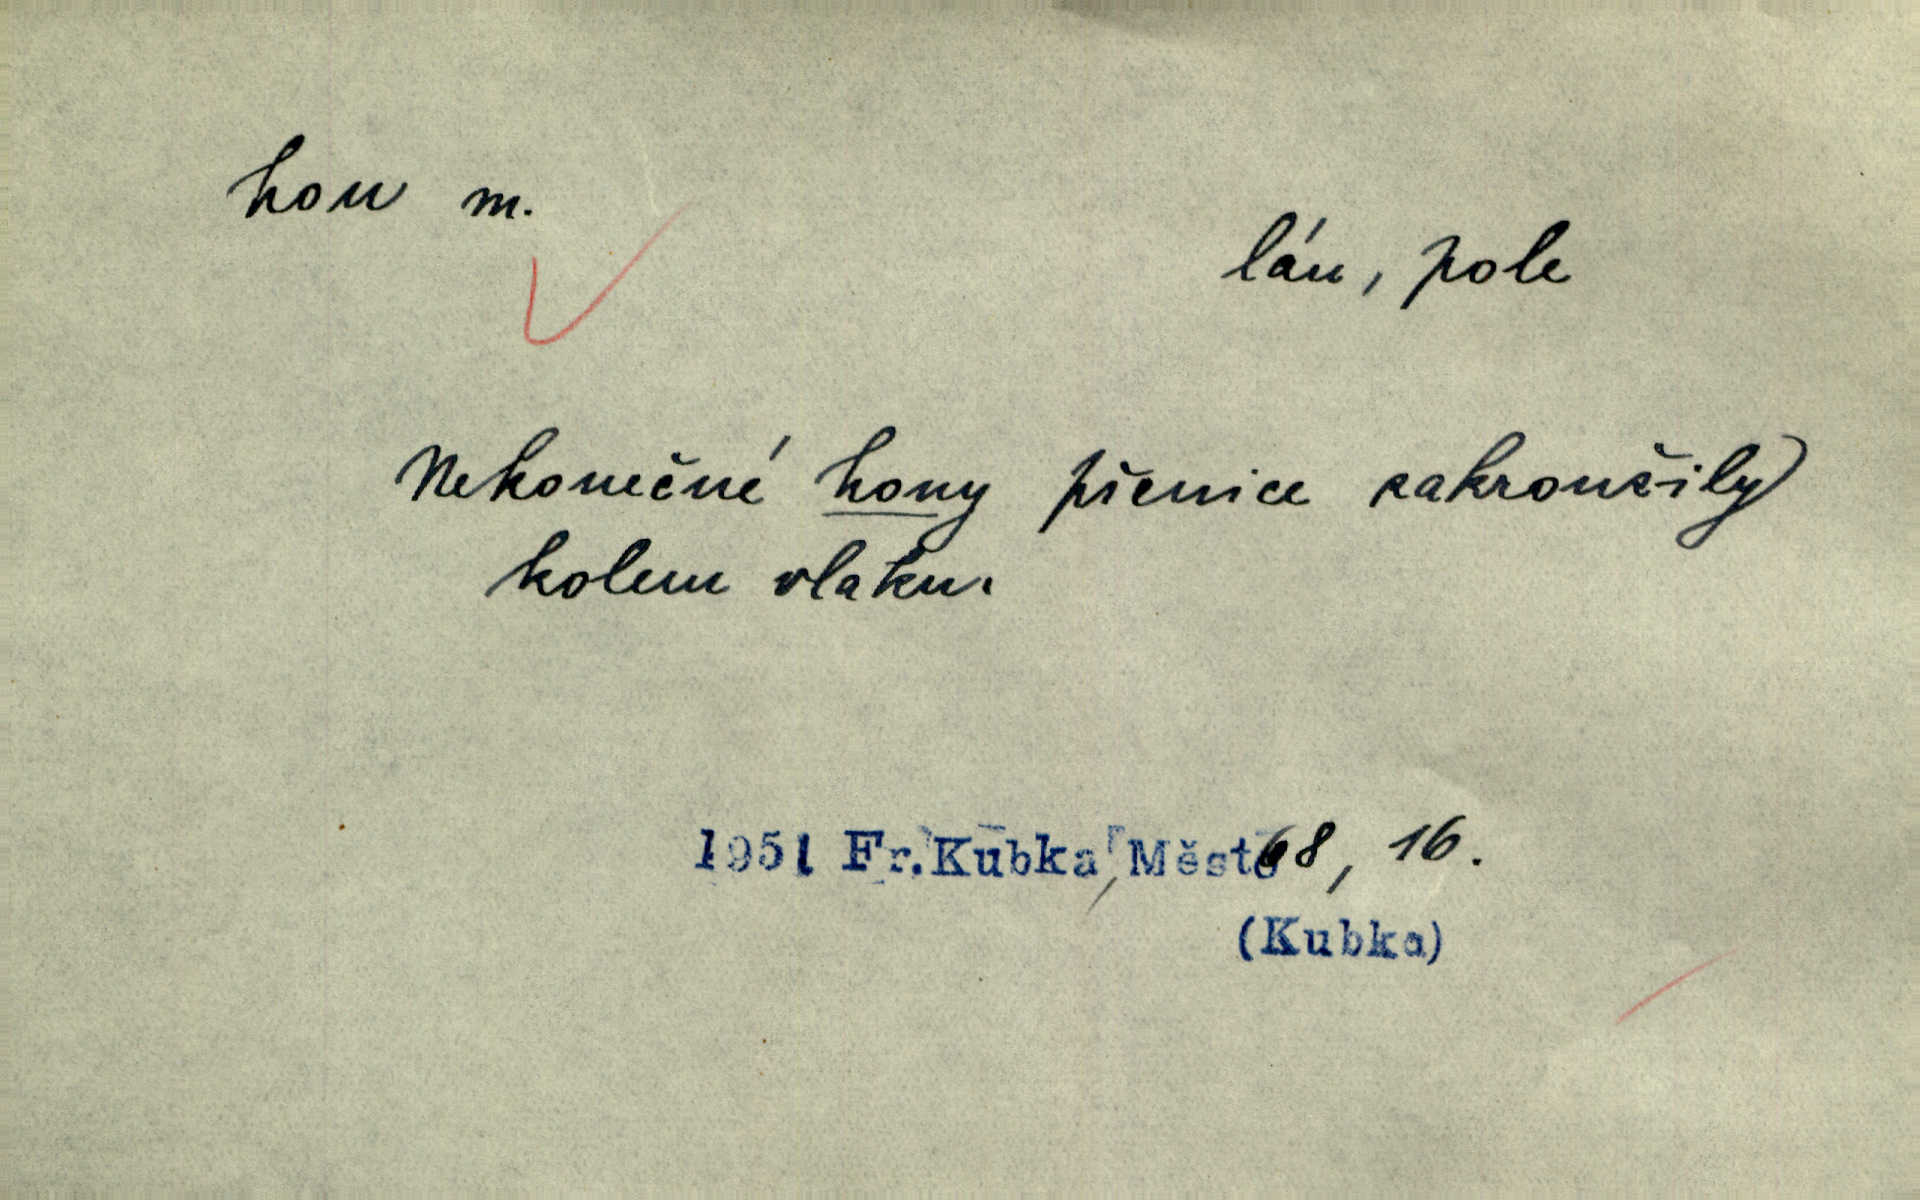 hon m.
lán, pole
Nekonečné hony pšenice zakroužily
kolem vlaku.
1951 Fr.Kubka, Město 68, 16.
(Kubka)